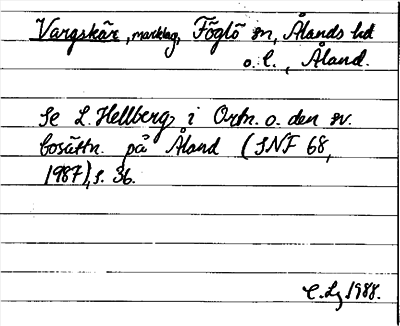 Vargskär, marklag, Föglö sn, Ålands hd
o. l., Åland.
Se L. Hellberg i Ortn. o. den sv.
bosättn. på Åland (SNF 68,
1987), s. 36.
C. Lg 1988.